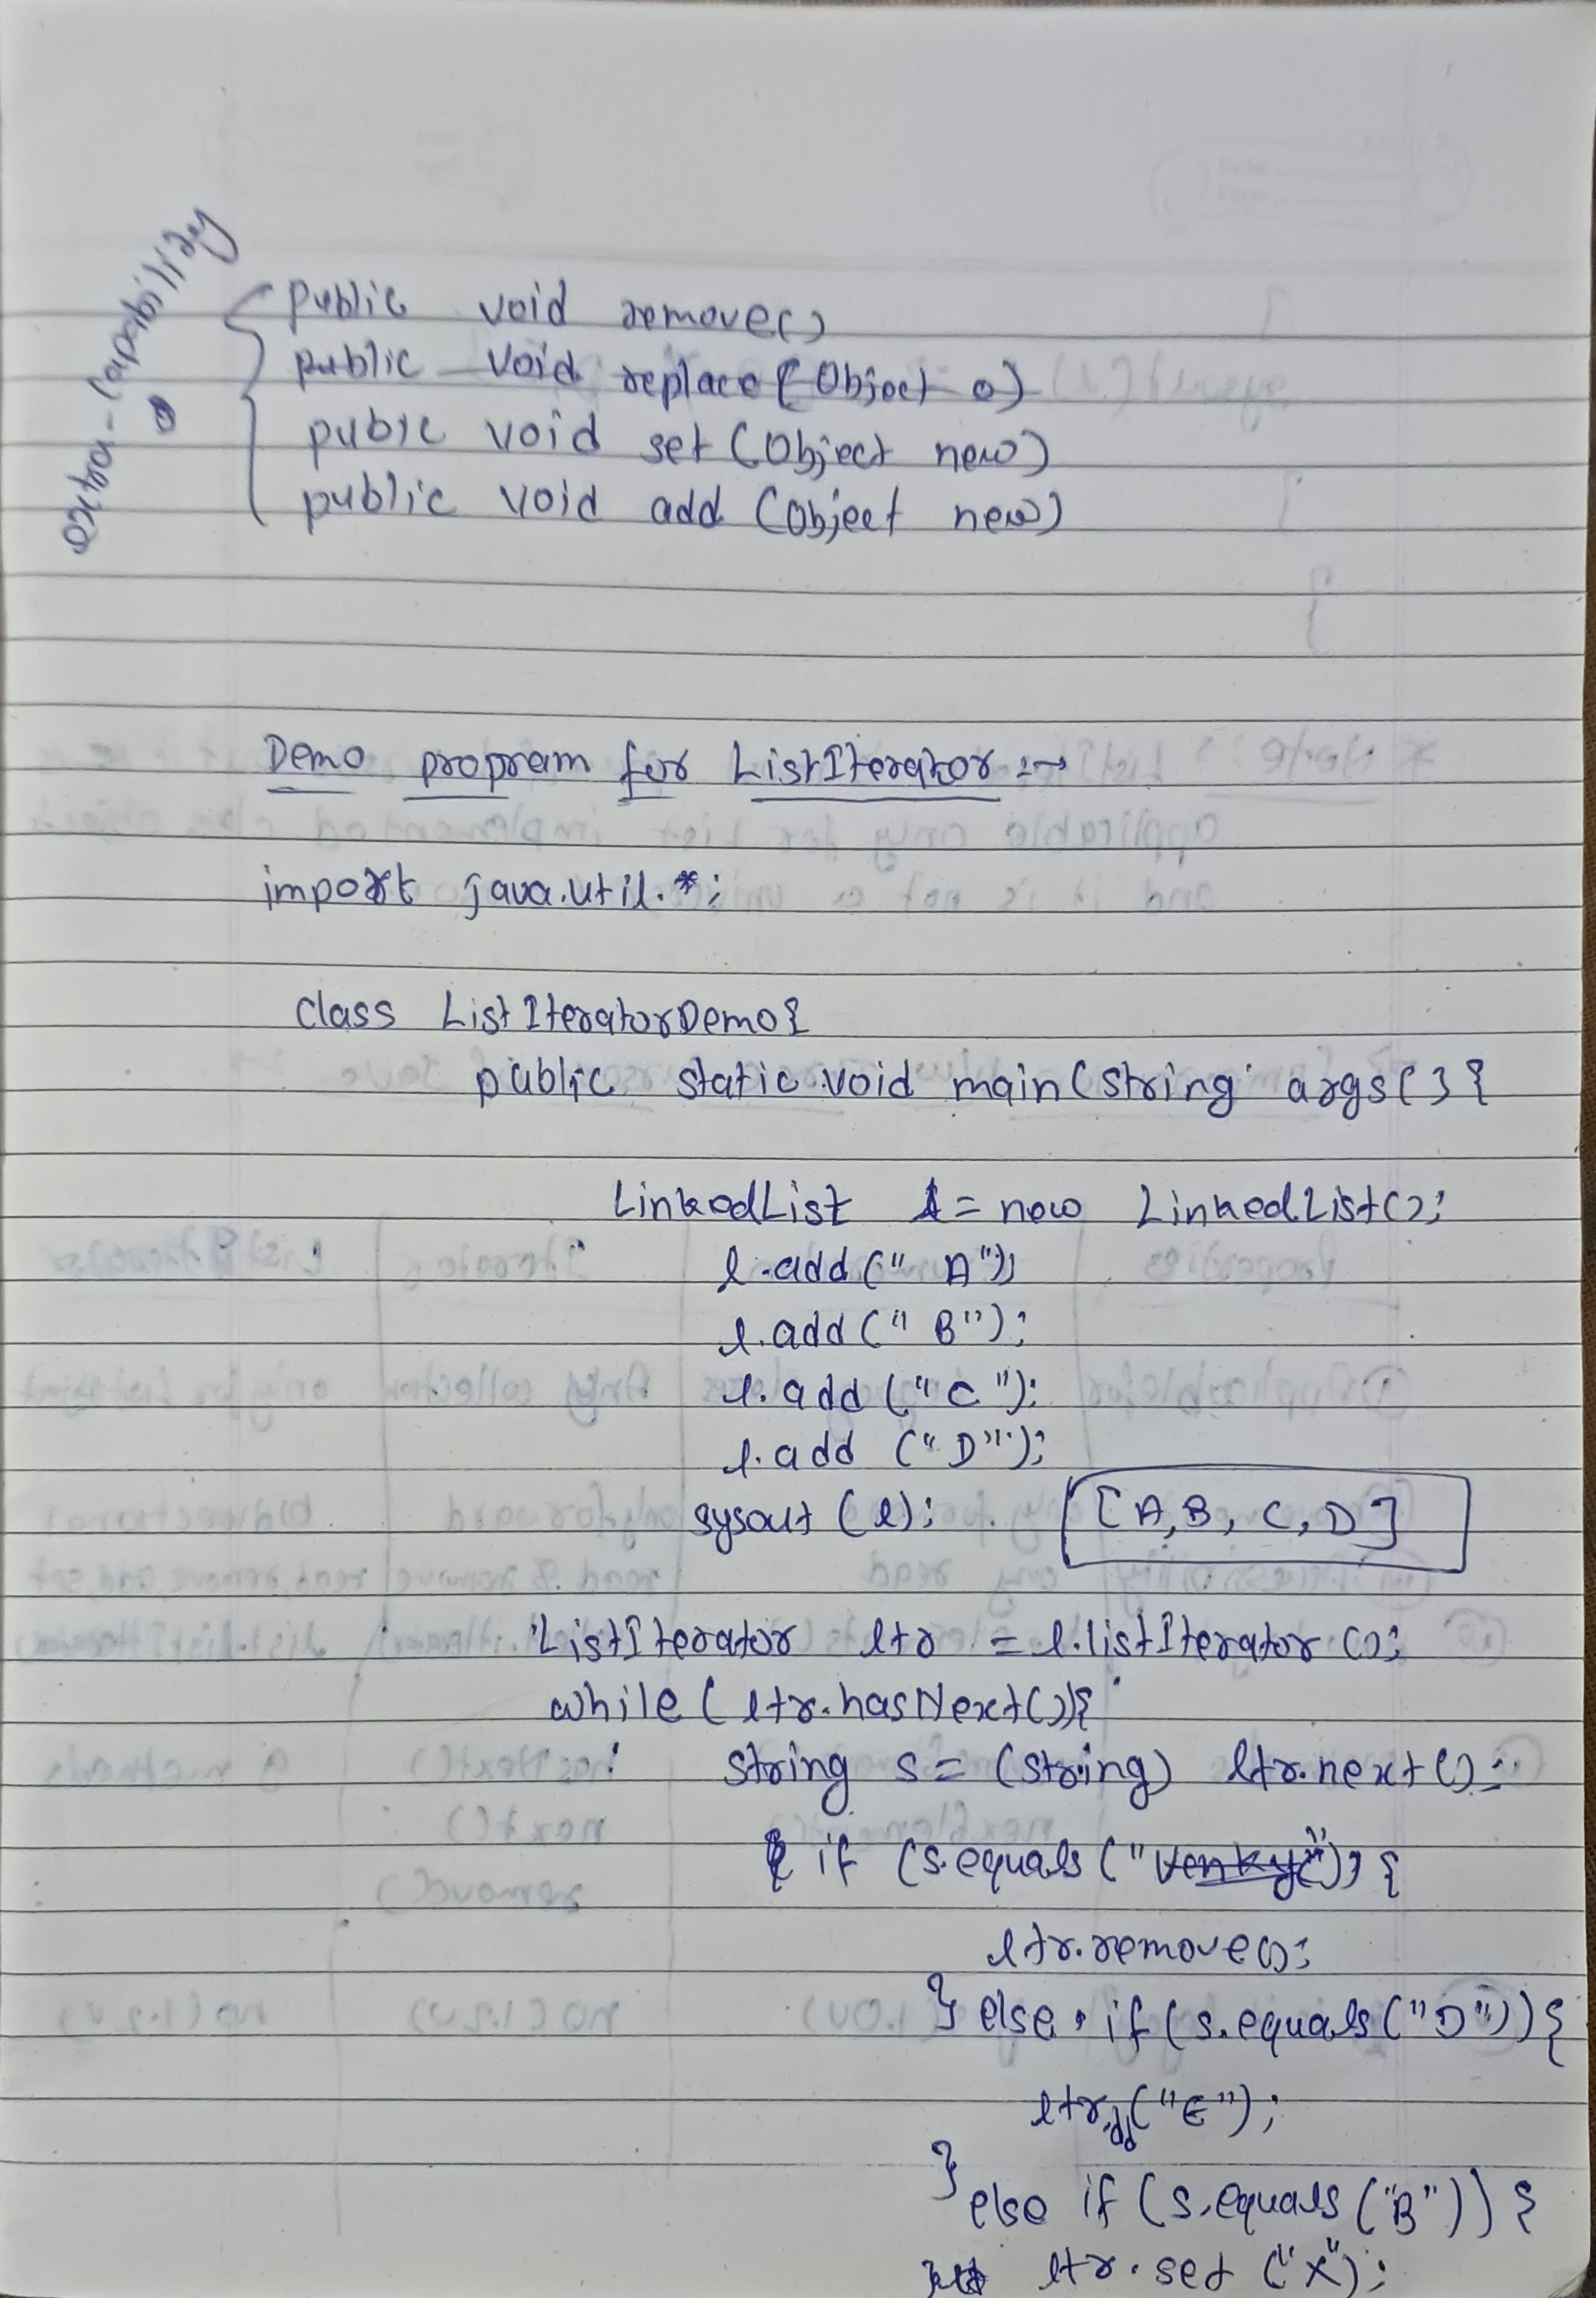 extra-Capability
public void remove()
public void replace(Object o)
pubic void set (Object new)
public void add (Object new)
Demo propram for ListIterator :→
import java.util.*;
class ListIteratorDemo{
public static void main(String args[]{
LinkedList l = new LinkedList();
l.add("A");
l.add("B");
l.add("C");
l.add("D");
sysout(l); [A,B,C,D]
ListIterator ltr = l.listIterator();
while(ltr.hasNext()){
String s = (string) ltr.next();
if (s.equals("")) {
ltr.remove();
} else if(s.equals("D")){
ltr.add("E");
}
else if (s.equals("B")) {
ltr.set("X");